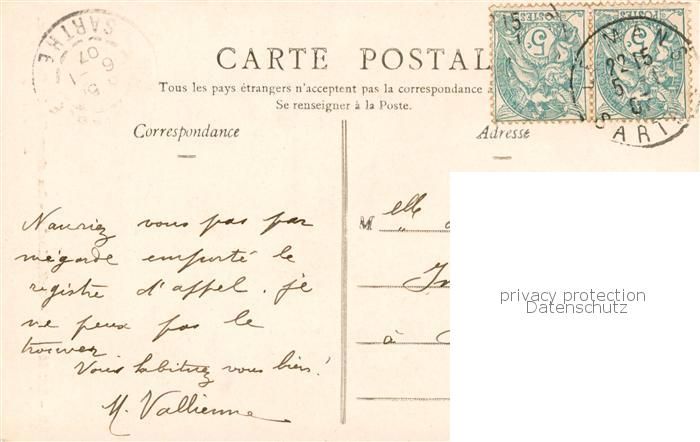 CARTE POSTAL
Tous les pays étrangers n'acceptent pas la correspondance
Se renseigner à la Poste.
Correspondance
Adresse
N'auriez vous pas par
mégarde emporté le
registre d'appel. je
ne peux pas le
trouver.
Vous habituez vous bien!
M. Vallienne
M elle
à
SARTHE
6 07
POSTES
5
5
15
MANS
22 15
SART
privacy protection
Datenschutz